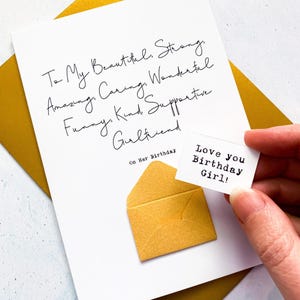 To My Beautiful, Strong,
Amazing, Caring, Wonderful
Funny, Kind, Supportive
Girlfriend
On Her Birthday
Love you
Birthday
Girl!